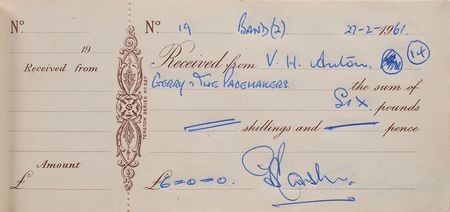 Nº
19
Received from
Amount
£
TERATON SERIES Nº 527
Nº 19 BAND (2) 27-2-1961
Received from V. H. Anton. 14
GERRY & THE PACEMAKERS the sum of
Six pounds
shillings and pence
£6=0=0.